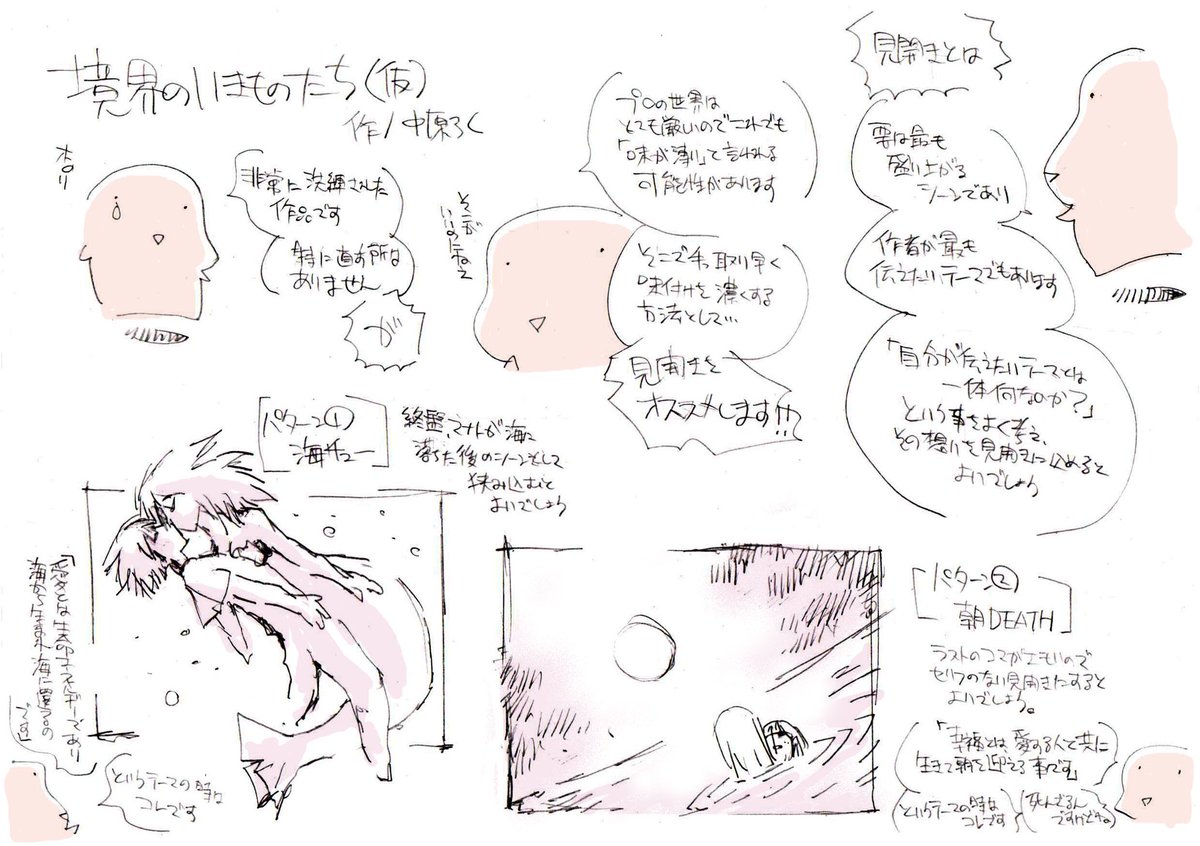 境界のいきものたち(仮)
作/中原ろく
ホロリ
非常に洗練された
作品です
特に直す所は
ありません
が
そこが
いいのにねえ
プロの世界は
とても厳しいのでこれでも
「味が薄い」て言われる
可能性があります
そこで手っ取り早く
味付けを濃くする
方法として…
見開きを
オススメします!!?
見開きとは
要は最も
盛り上がる
シーンであり
作者が最も
伝えたいテーマでもあります
「自分が伝えたいテーマとは
一体何なのか?」
という事をよく考え、
その想いを見開きに込めると
よいでしょう
パターン①
海チュー
終盤、ミナトが海に
落ちた後のシーンとして
挟み込むと
よいでしょう
「愛とは生命のエネルギーであり
海から生まれ海に還るの
です」
というテーマの時は
コレです
パターン②
朝DEATH
ラストのコマがエモいので
セリフのない見開きにすると
よいでしょう。
「幸福とは、愛する人と共に
生きて朝を迎える事です」
というテーマの時は
コレです
死んでるん
ですけどね